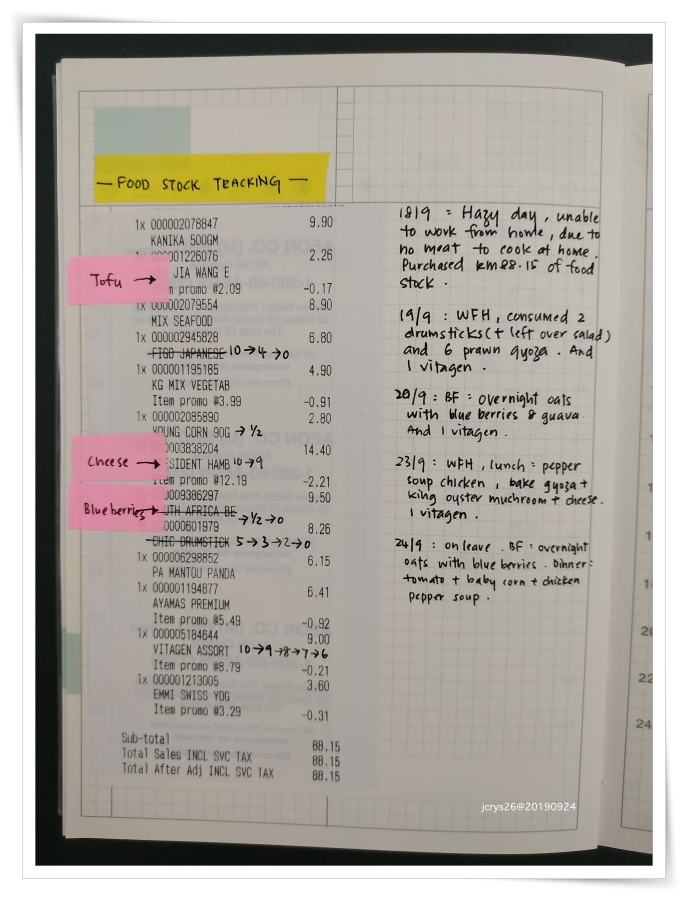 — FOOD STOCK TRACKING —
1x 000002078847 9.90
KANIKA 500GM
000001226076 2.26
Tofu → JIA WANG E
m promo @2.09 -0.17
1x 000002079554 8.90
MIX SEAFOOD
1x 000002945828 6.80
FIGO JAPANESE 10→4→0
1x 000001195185 4.90
KG MIX VEGETAB
Item promo @3.99 -0.91
1x 000002085890 2.80
YOUNG CORN 90G → 1/2
0003838204 14.40
Cheese → ESIDENT HAMB 10→9
Item promo @12.19 -2.21
009386297 9.50
Blueberries → UTH AFRICA BE → 1/2 → 0
00000601979 8.26
CHIC DRUMSTICK 5→3→2→0
1x 000006298852 6.15
PA MANTOU PANDA
1x 000001194877 6.41
AYAMAS PREMIUM
Item promo @5.49 -0.92
1x 000005184644 9.00
VITAGEN ASSORT 10→9→8→7→6
Item promo @8.79 -0.21
1x 000001213005 3.60
EMMI SWISS YOG
Item promo @3.29 -0.31
Sub-total 88.15
Total Sales INCL SVC TAX 88.15
Total After Adj INCL SVC TAX 88.15
18/9 : Hazy day, unable
to work from home, due to
no meat to cook at home.
Purchased RM88.15 of food
stock.
19/9 : WFH, consumed 2
drumsticks (+ left over salad)
and 6 prawn gyoza. And
1 vitagen.
20/9 : BF : overnight oats
with blue berries & guava.
And 1 vitagen.
23/9 : WFH, lunch : pepper
soup chicken, bake gyoza +
king oyster muchroom + cheese.
1 vitagen.
24/9 : on leave. BF : overnight
oats with blue berries. Dinner :
tomato + baby corn + chicken
pepper soup.
20
22
24
jcrys26@20190924